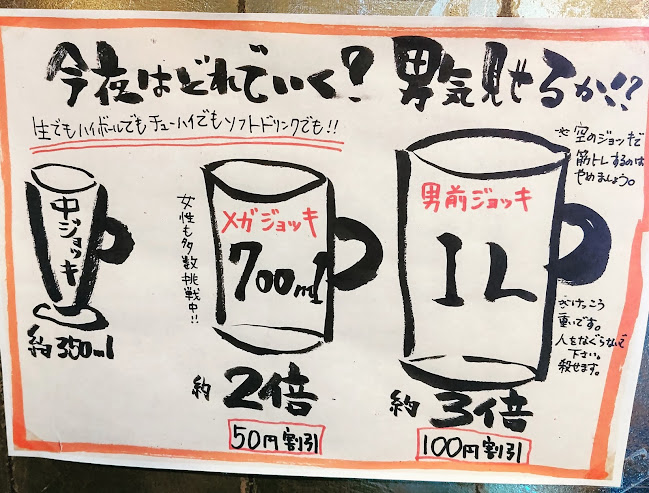 今夜はどれでいく? 男気見せるか!?
生でもハイボールでもチューハイでもソフトドリンクでも!!
※空のジョッキで
筋トレするのは
やめましょう。
中ジョッキ
約350ml
女性も多数挑戦中!!
メガジョッキ
700ml
約2倍
50円割引
男前ジョッキ
1L
約3倍
100円割引
※けっこう
重いです。
人をなぐらないで
下さい。
殺せます。